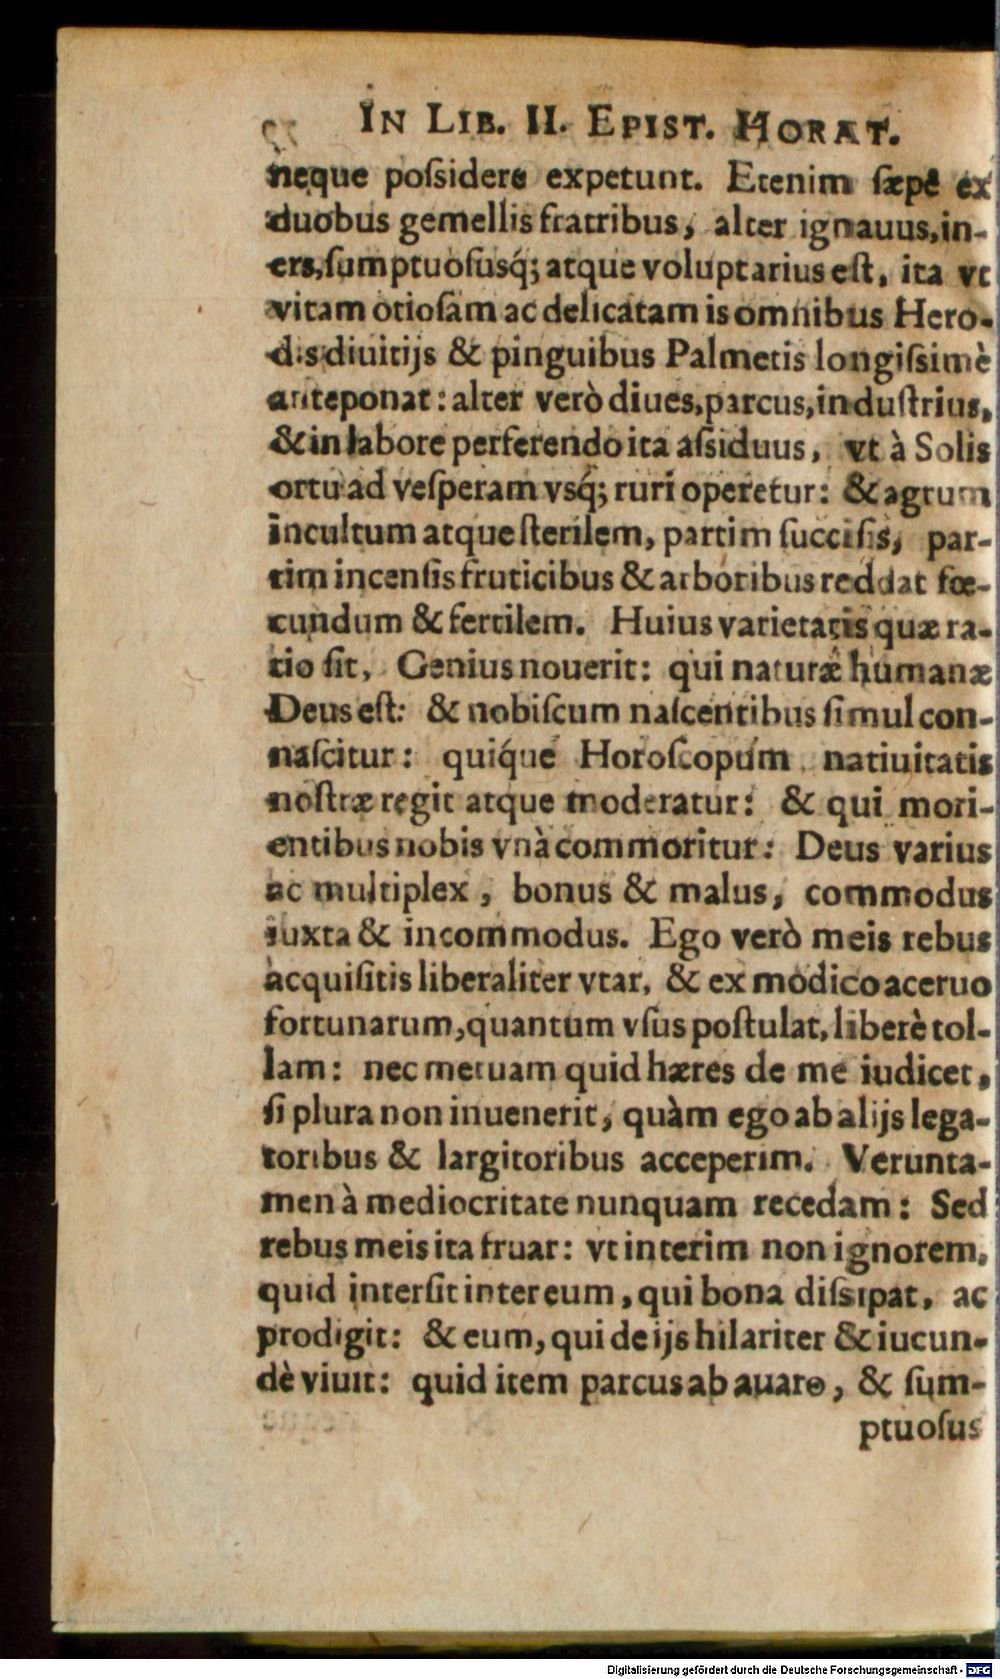 IN LIB. II. EPIST. HORAT.
neque poſsidere expetunt. Etenim ſæpè ex
duobus gemellis fratribus, alter ignauus, in-
ers, ſumptuoſusq́; atque voluptarius eſt, ita vt
vitam otioſam ac delicatam is omnibus Hero-
dis diuitijs & pinguibus Palmetis longiſsimè
anteponat: alter verò diues, parcus, induſtrius,
& in labore perferendo ita aſsiduus, vt à Solis
ortu ad veſperam vsq́; ruri operetur: & agrum
incultum atque ſterilem, partim ſucciſis, par-
tim incenſis fruticibus & arboribus reddat fœ-
cundum & fertilem. Huius varietatis quæ ra-
tio ſit, Genius nouerit: qui naturæ humanæ
Deus eſt: & nobiſcum naſcentibus ſimul con-
naſcitur: quiq́ue Horoſcopum natiuitatis
noſtræ regit atque moderatur: & qui mori-
entibus nobis vnà commoritur: Deus varius
ac multiplex, bonus & malus, commodus
iuxta & incommodus. Ego verò meis rebus
acquiſitis liberaliter vtar, & ex modico aceruo
fortunarum, quantum vſus poſtulat, liberè tol-
lam: nec metuam quid hæres de me iudicet,
ſi plura non inuenerit, quàm ego ab alijs lega-
toribus & largitoribus acceperim. Verunta-
men à mediocritate nunquam recedam: Sed
rebus meis ita fruar: vt interim non ignorem,
quid interſit inter eum, qui bona diſsipat, ac
prodigit: & eum, qui de ijs hilariter & iucun-
dè viuit: quid item parcus ab auaro, & ſum-
ptuoſus
Digitalisierung gefördert durch die Deutsche Forschungsgemeinschaft - DFG